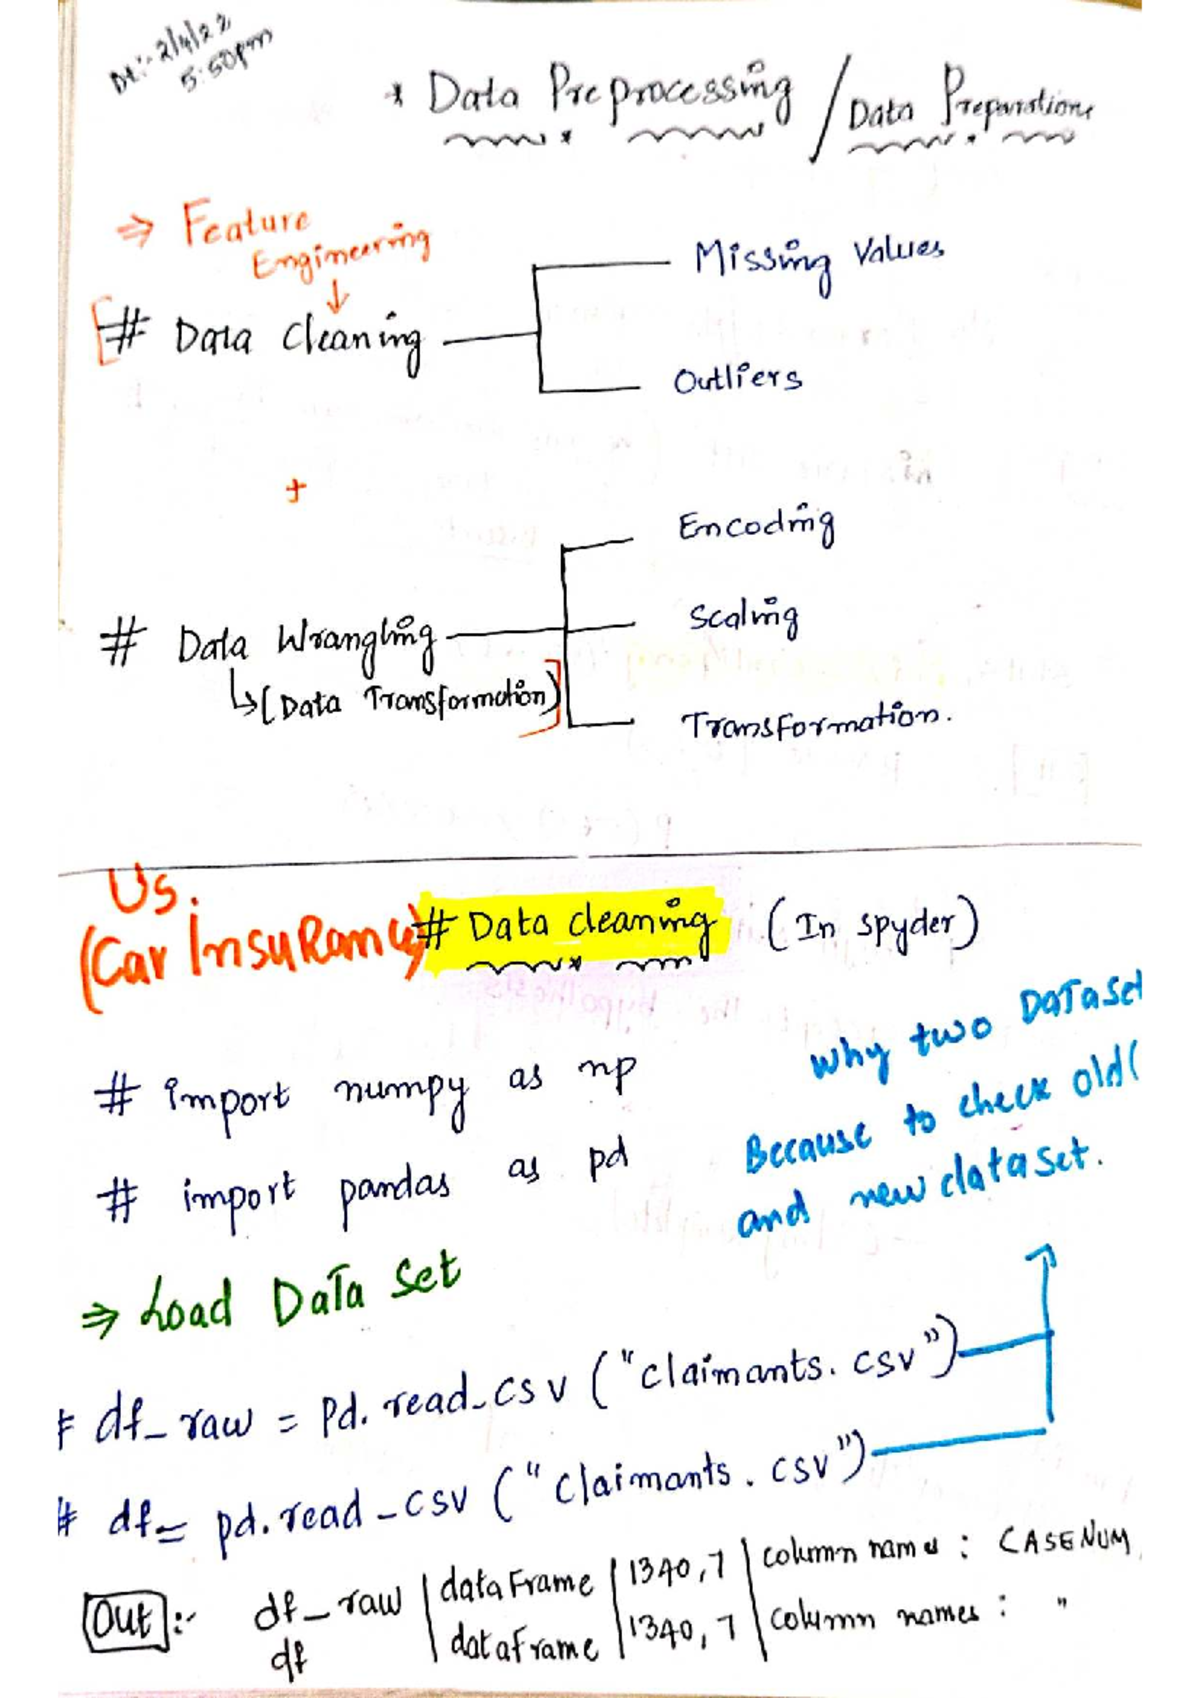 Dt:- 2/4/22
5:50pm
* Data Preprocessing / Data Preparation
⇒ Feature Engineering
↓
Missing Values
[# Data Cleaning
Outliers
+
Encoding
# Data Wrangling
Scaling
↳ (Data Transformation)]
Transformation.
Us.
(Car Insurance) # Data cleaning (In spyder)
# import numpy as np
# import pandas as pd
why two DATASet
Because to check old(
and new dataset.
⇒ Load DaTa Set
# df_raw = Pd.read_csv ("claimants.csv")
# df = pd.read_csv ("claimants.csv")
Out :- df_raw | dataFrame | 1340,7 | column names : CASENUM
df | dataframe | 1340,7 | column names : "